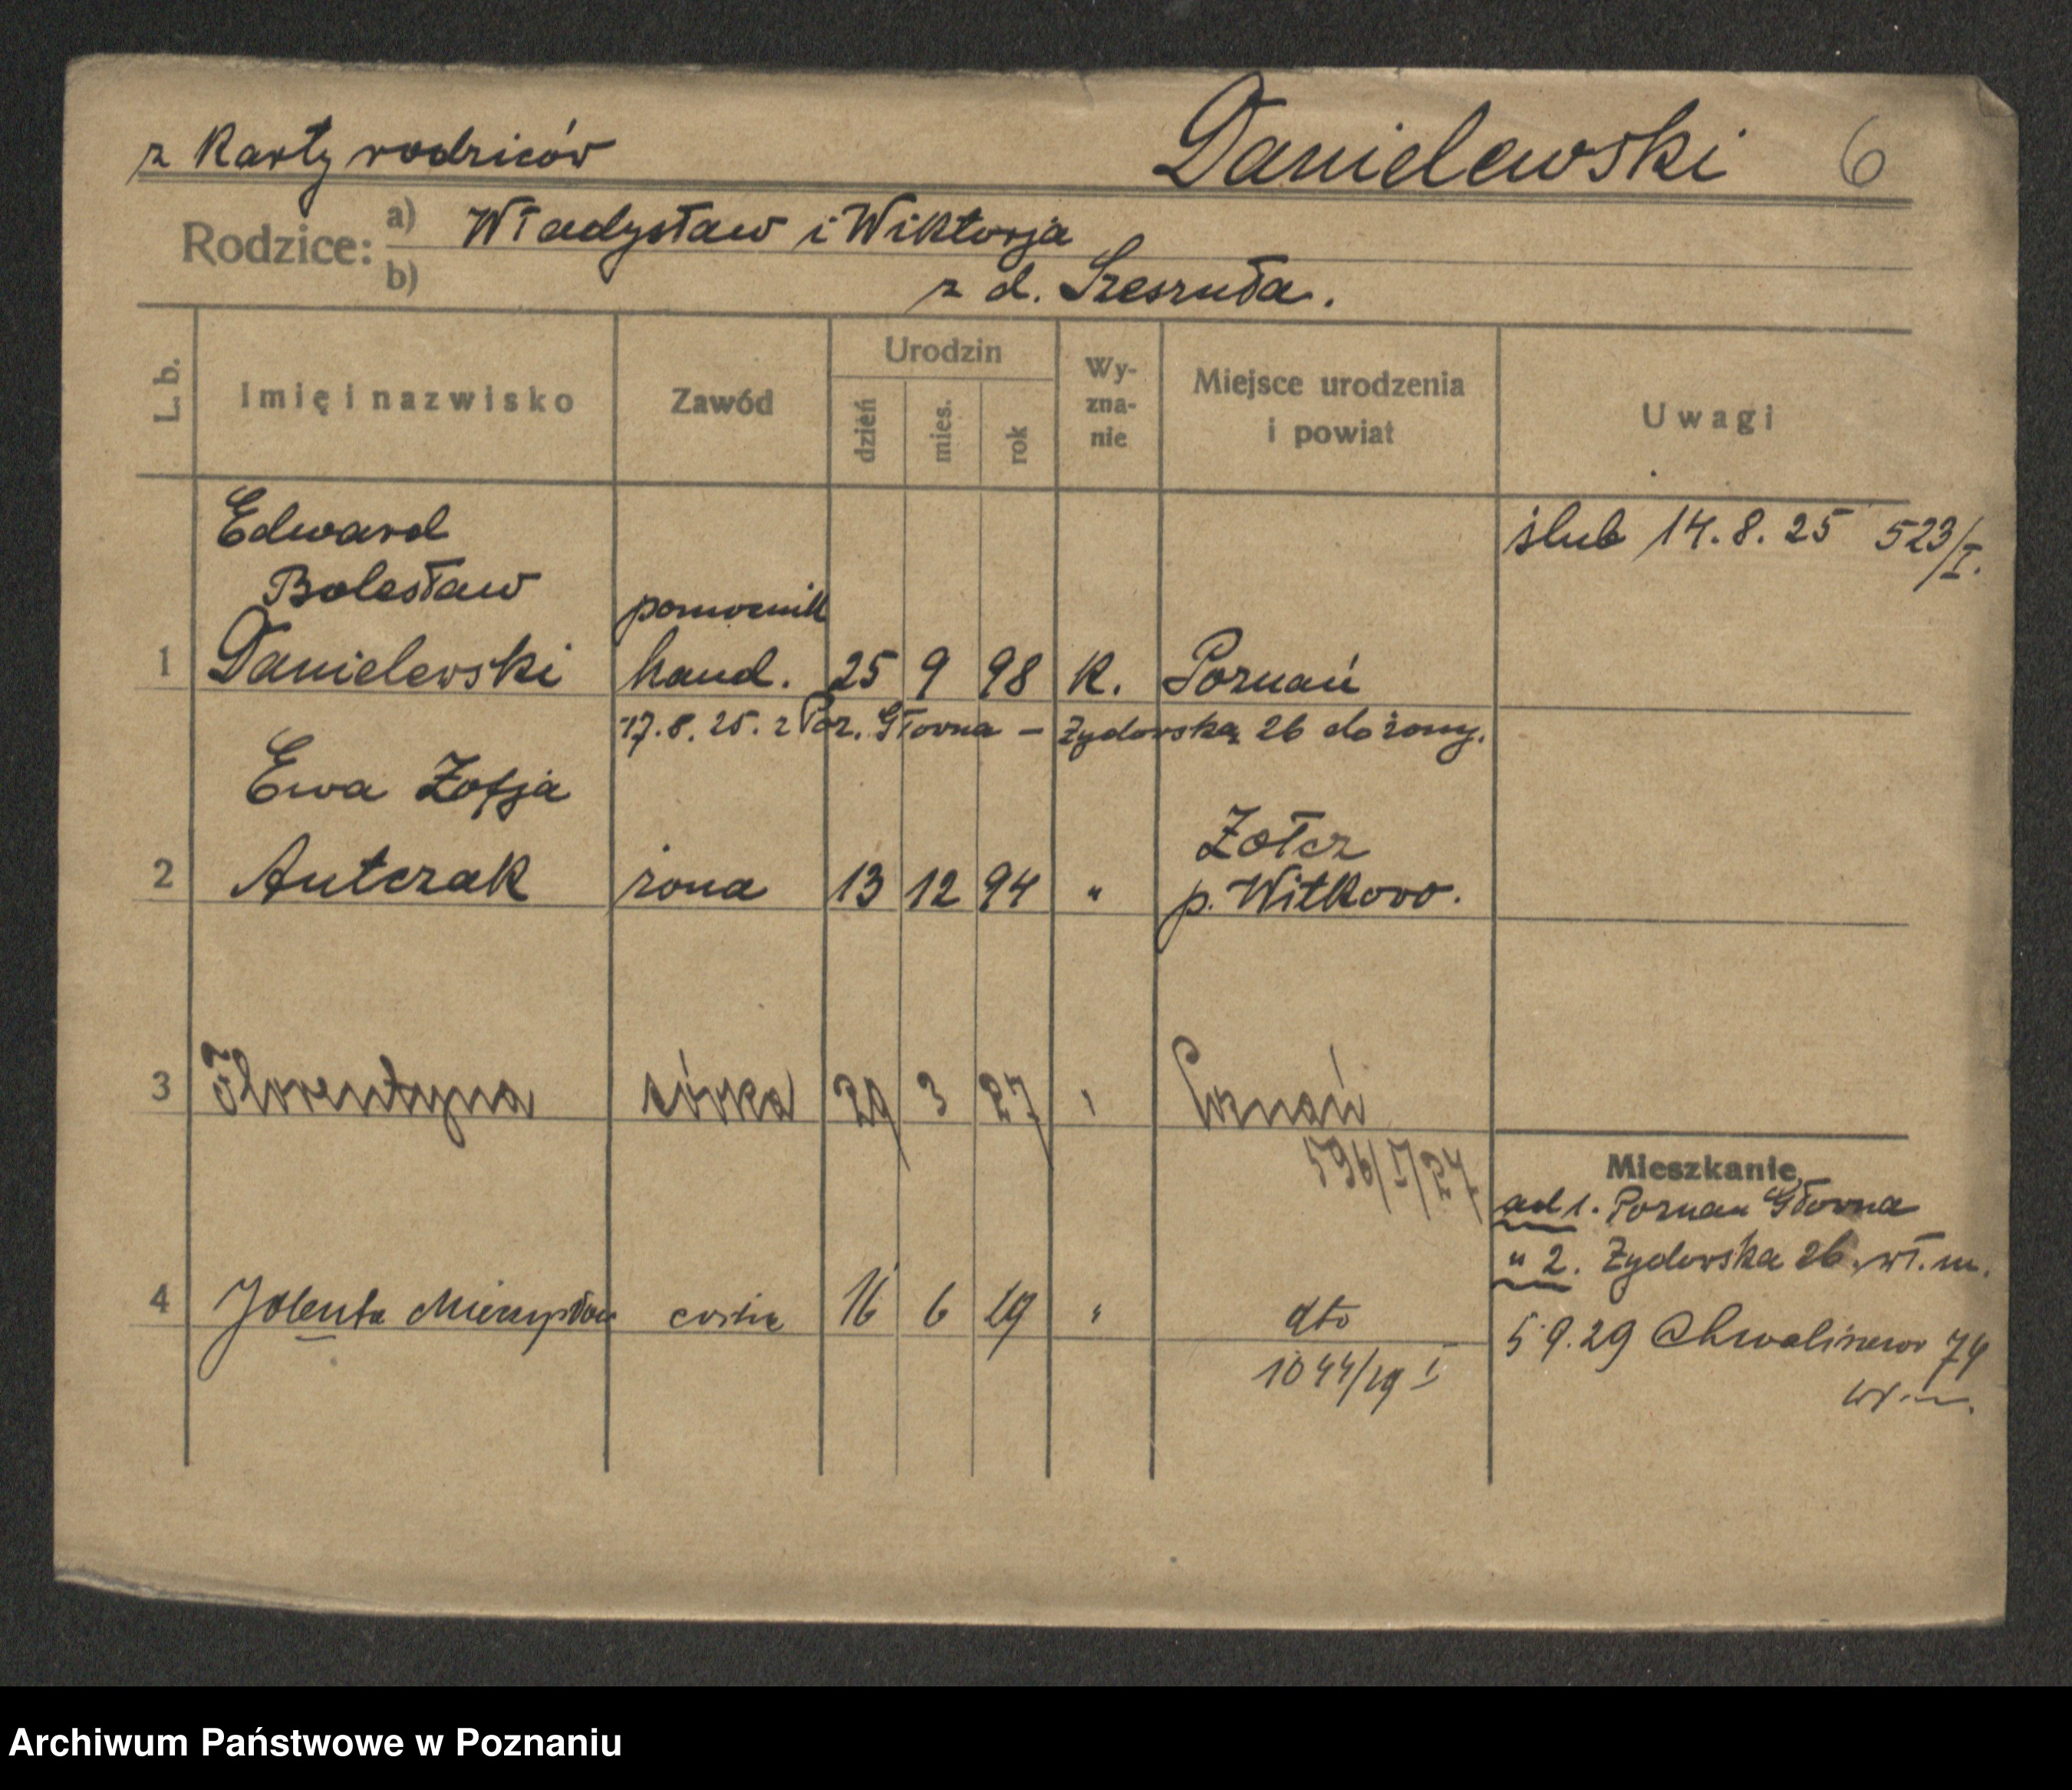 z Karty rodziców Danielewski 6
Rodzice: a) Władysław i Wiktorja
b) z d. Szeszuła.
L. b. Imię i nazwisko Zawód Urodzin dzień mies. rok Wy-zna-nie Miejsce urodzenia i powiat Uwagi
Edward ślub 14.8.25 523/I.
Bolesław pomocnik
1 Danielewski hand. 25 9 98 K. Poznań
17.8.25. z Poz. Głovna – Żydowska 26 do żony.
Ewa Zofja
Żołcz
2 Antczak żona 13 12 94 " p. Witkowo.
3 Florentyna córka 29 3 27 " Poznań
596/I/27
Mieszkanie
ad 1. Poznan Głovna
" 2. Żydowska 26. wł. m.
4 Jolenta córka 16 6 29 " dto
5 9.29 Chwaliszewo 74
1044/29 I
wł. m.
Archiwum Państwowe w Poznaniu